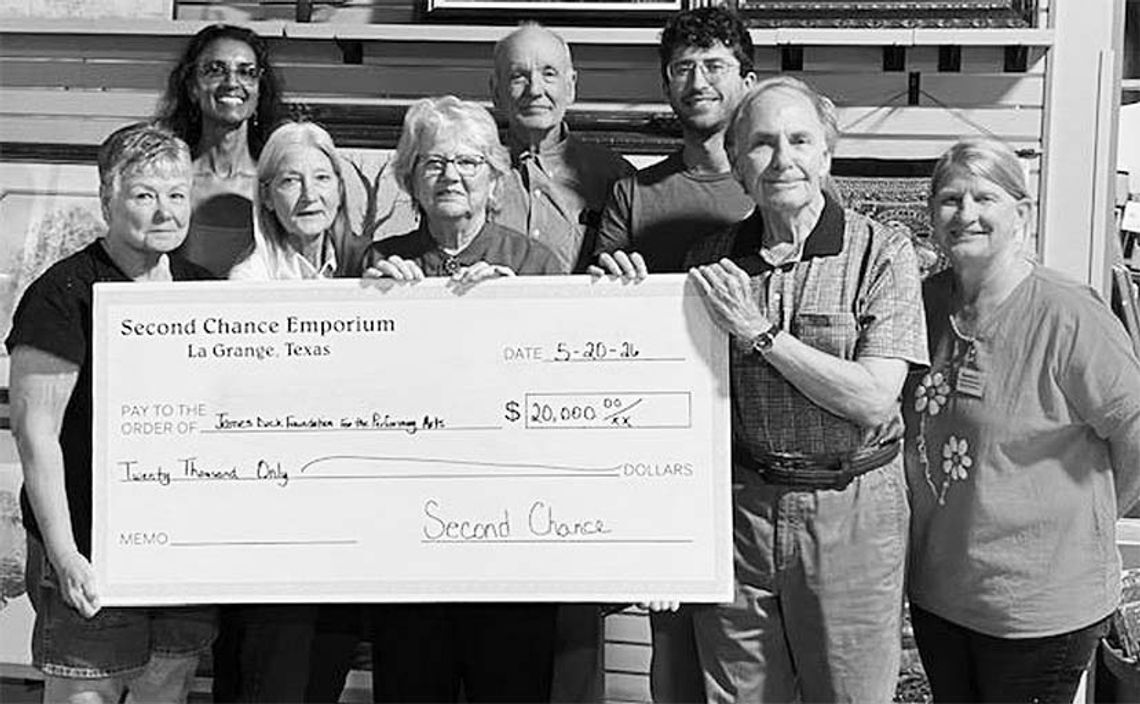 Second Chance Emporium
La Grange, Texas
DATE 5-20-26
PAY TO THE
ORDER OF James Dick Foundation for the Performing Arts $ 20,000 00/xx
Twenty Thousand Only DOLLARS
MEMO
Second Chance